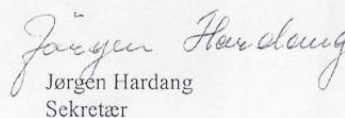 Jørgen Hardang
Jørgen Hardang
Sekretær